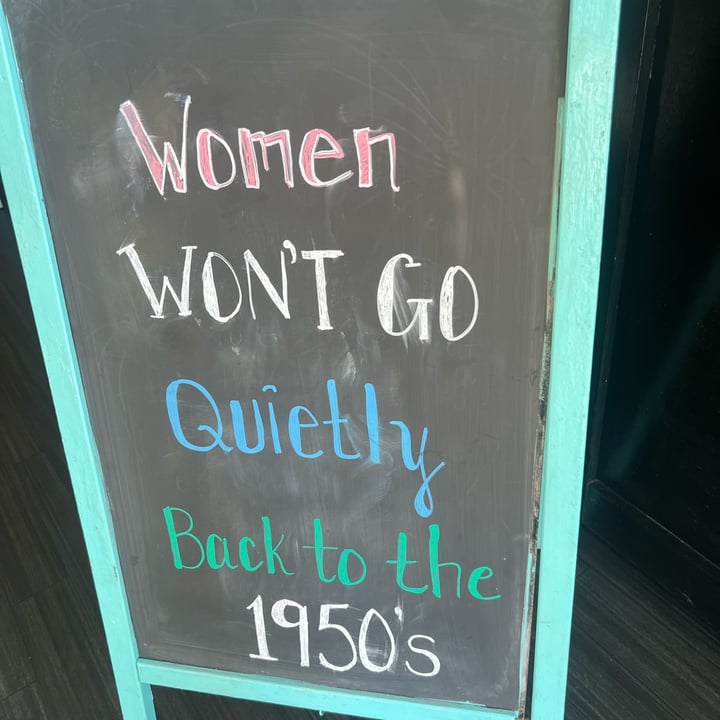 Women
WON'T GO
Quietly
Back to the
1950's